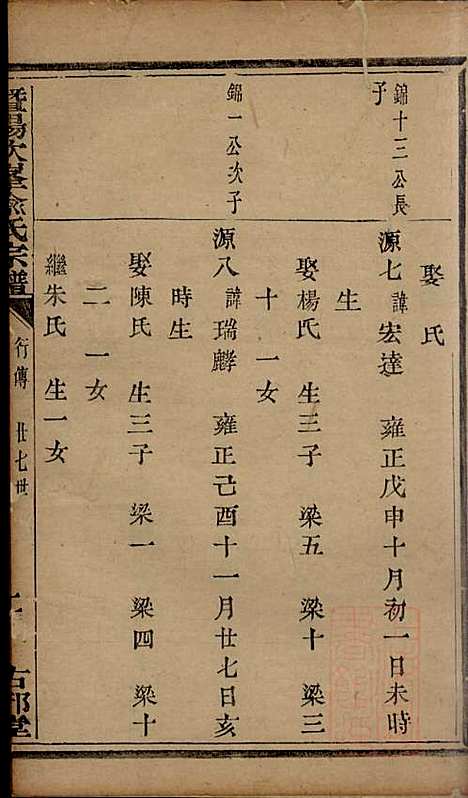 娶 氏
錦十三公長
子
源七 諱宏達 雍正戊申十月初一日未時
生
娶楊氏 生三子 梁五 梁十 梁三
十 一女
錦一公次子
源八 諱瑞麟 雍正己酉十一月廿七日亥
時生
娶陳氏 生三子 梁一 梁四 梁十
二 一女
繼朱氏 生一女
暨陽次峯俞氏宗譜
行傳 廿七世